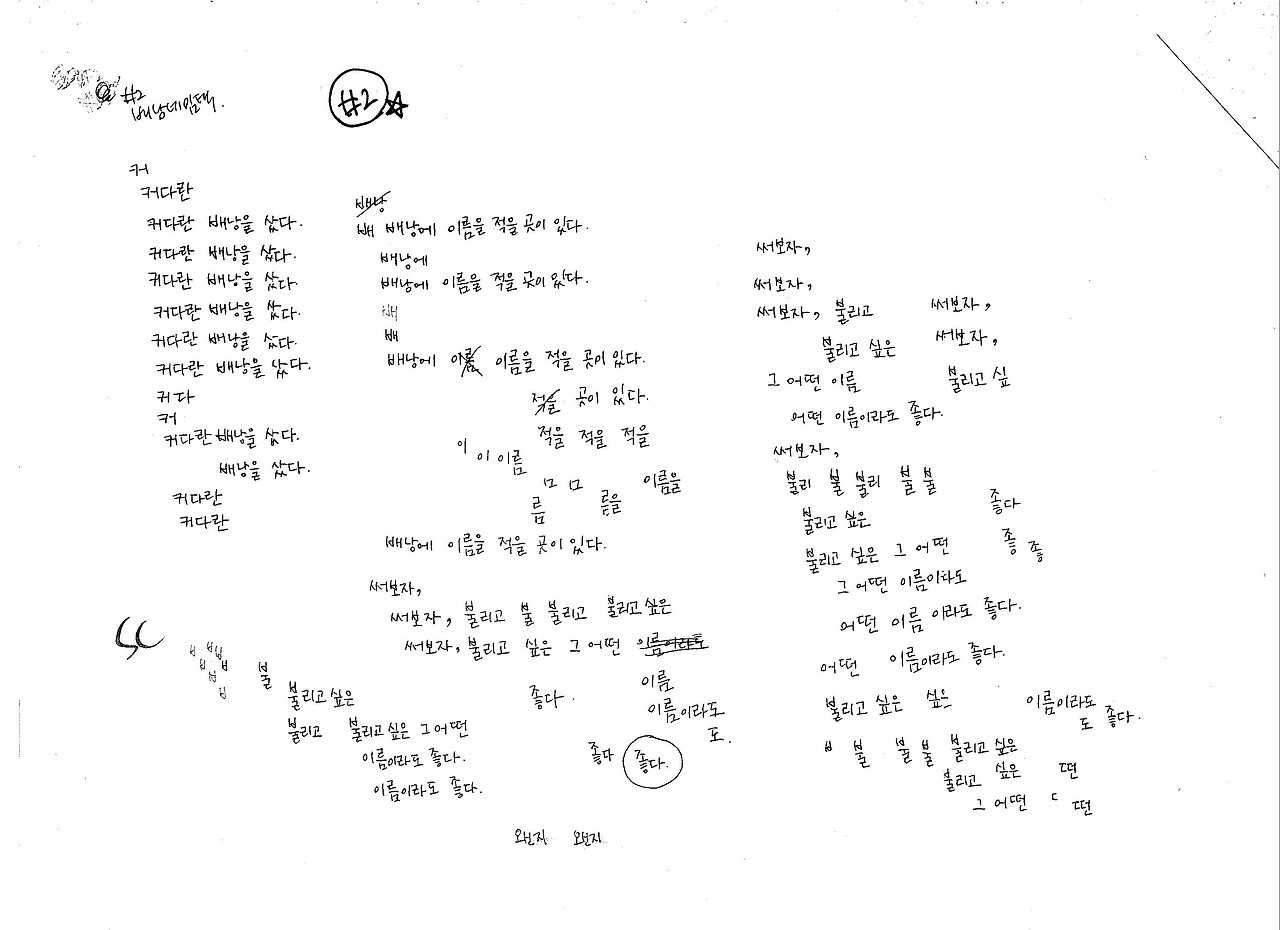 #2
배낭네임택.
#2
커
커다란
커다란 배낭을 샀다.
커다란 배낭을 샀다.
커다란 배낭을 샀다.
커다란 배낭을 샀다.
커다란 배낭을 샀다.
커다란 배낭을 샀다.
커다
커
커다란 배낭을 샀다.
배낭을 샀다.
커다란
커다란
배낭
배 배낭에 이름을 적을 곳이 있다.
배낭에
배낭에 이름을 적을 곳이 있다.
배
배
배낭에 이름 이름을 적을 곳이 있다.
적을 곳이 있다.
적을 적을 적을
이 이 이름
ㅁ ㅁ 이름을
름 름을
배낭에 이름을 적을 곳이 있다.
써보자,
써보자, 불리고 불 불리고 불리고싶은
써보자, 불리고 싶은 그 어떤 이름이라도
ㅂ ㅂㅂ
ㅂ ㅂ ㅂ
ㅂ
불
불리고싶은 좋다. 이름
불리고 불리고싶은 그어떤 이름이라도
도.
이름이라도 좋다. 좋다 좋다.
이름이라도 좋다.
왼지 왼지
써보자,
써보자,
써보자, 불리고 써보자,
불리고 싶은 써보자,
그 어떤 이름 불리고 싶
어떤 이름이라도 좋다.
써보자,
불리 불 불리 불 불
불리고 싶은 좋다
불리고 싶은 그 어떤 좋 좋
그 어떤 이름이라도
어떤 이름 이라도 좋다.
어떤 이름이라도 좋다.
불리고 싶은 싶은 이름이라도
도 좋다.
ㅂ 불 불 불 불리고 싶은
불리고 싶은 떤
그 어떤 ㄷ 떤